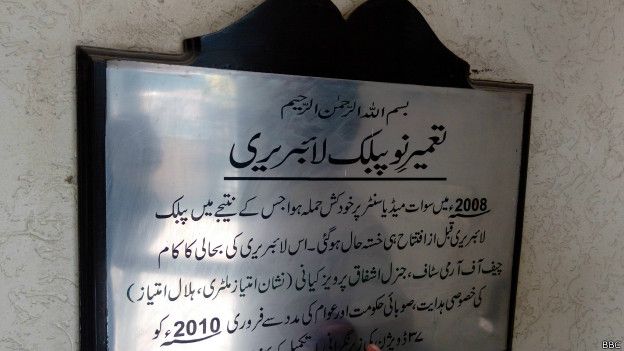 بسم اللہ الرّحمٰن الرّحیم
تعمیرِ نو پبلک لائبریری
2008ء میں سوات میڈیا سنٹر پر خودکش حملہ ہوا جس کے نتیجے میں پبلک
لائبریری قبل از افتتاح ہی خستہ حال ہو گئی۔ اس لائبریری کی بحالی کا کام
چیف آف آرمی سٹاف، جنرل اشفاق پرویز کیانی (نشان امتیاز ملٹری، ہلال امتیاز)
کی خصوصی ہدایت، صوبائی حکومت اور عوام کی مدد سے فروری 2010ء کو
۳۷ ڈویژن کی زیر نگرانی
BBC